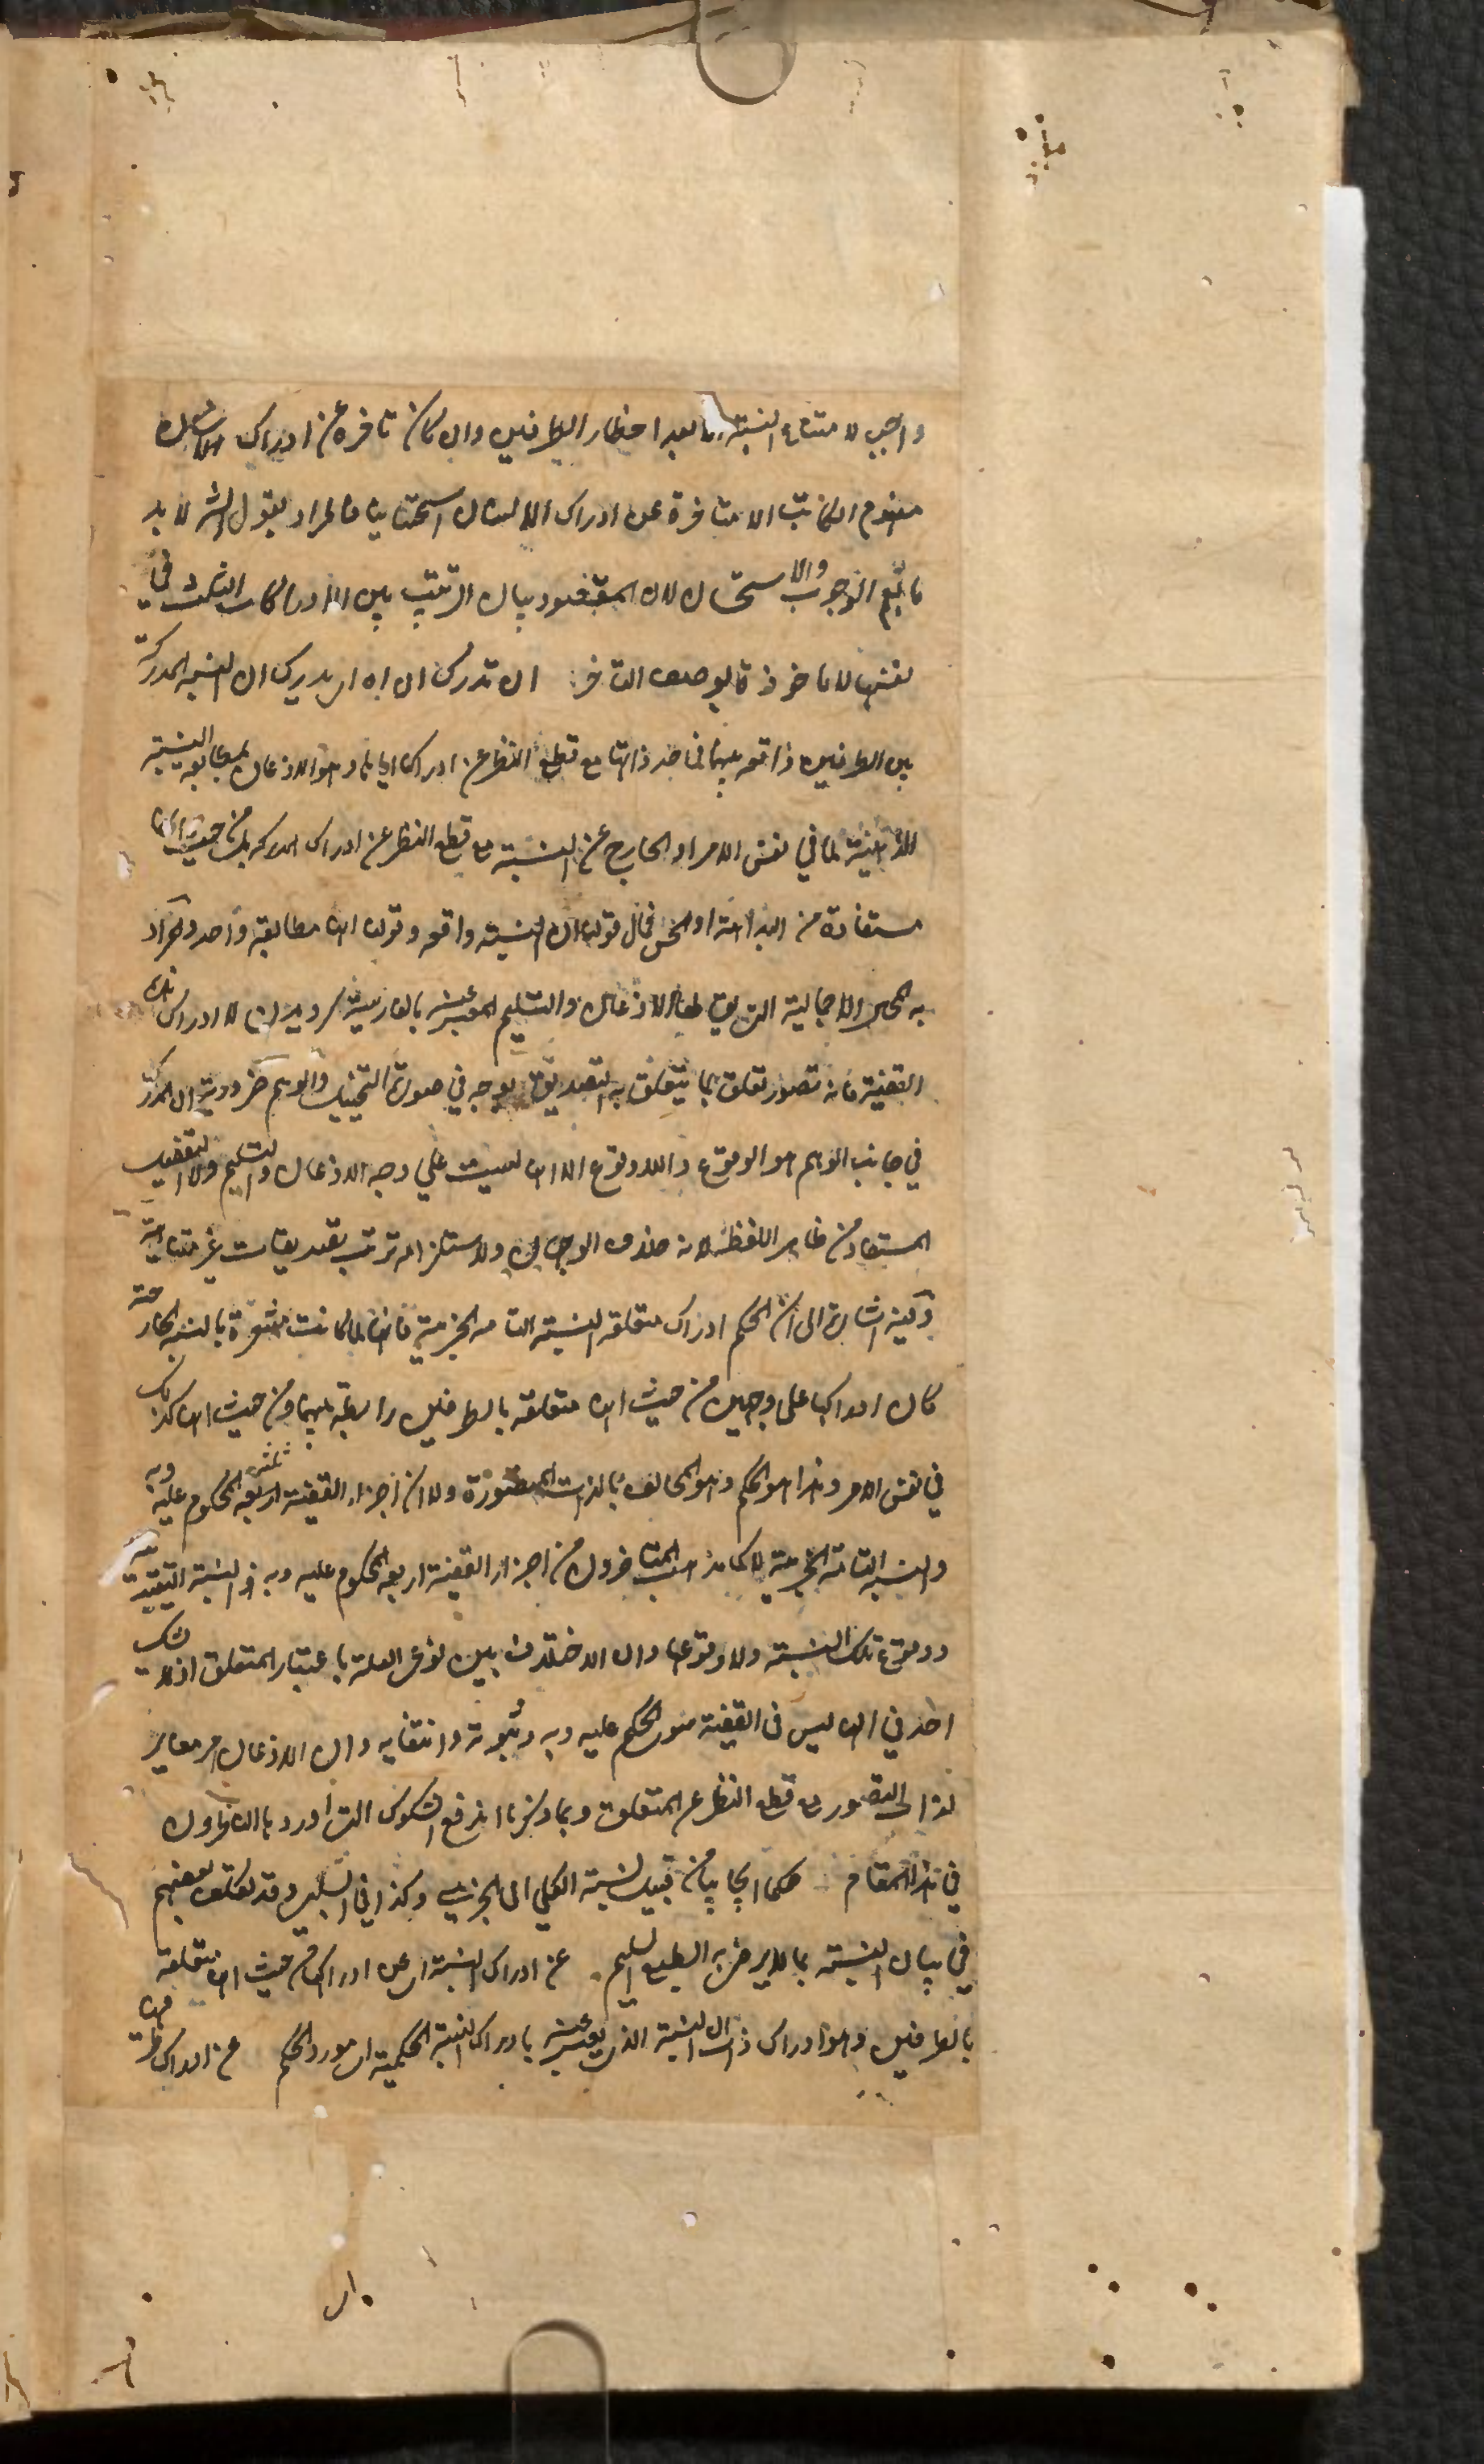 واجب لامتناع النسبة بعد احضار الطرفين وان كان تاخره عن ادراك
مفهوم الكاتب الا متأخرة عن ادراك الانسان استحسانيا فالمراد بقول الش لا بد
ما يعم الوجوب والاستحسان لان المقصود بيان الترتيب بين الادراكات الثلث في
نفسها لا ماخوذة بوصف التاخر ان تدرك ان اه اى يدرك ان النسبة المدركة
بين الطرفين واقعة بينهما في حد ذاتها مع قطع النظر عن ادراكنا اياها وهو الاذعان بمطابقة النسبة
الذهنية لما في نفس الامر او الخارج عن النسبة مع قطع النظر عن ادراك المدرك بل من حيث انها
مستفادة من البداهة او الحس فمآل قولنا ان النسبة واقعة وقولنا انها مطابقة واحد والمراد
به الحال الاجمالية التي يقال لها الاذعان والتسليم المعبر عنه بالفارسية بگرويدن لا ادراك هذه
القضية فانه تصور تعلق بما يتعلق به التصديق يوجد في صورة التخييل والوهم ضرورة ان المدرك
في جانب الوهم هو الوقوع واللاوقوع الا انه ليس على وجه الاذعان والتسليم ولا التفصيل
المستفاد من ظاهر اللفظ لانه خلاف الوجدان ولاستلزامه ترتب تصديقات غير متناهية
وفيه اشارة الى ان الحكم ادراك متعلقه النسبة التامة الخبرية فانها لما كانت مشعرة بالنسبة الخارجية
كان ادراكها على وجهين من حيث انها متعلقة بالطرفين رابطة بينهما ومن حيث انها كذلك
في نفس الامر وهذا هو الحكم وهو المخالف بالذات للتصور ولا ان اجزاء القضية ثلثة المحكوم عليه وبه
والنسبة التامة الخبرية لا كما ذهب المتاخرون من اجزاء القضية اربعة المحكوم عليه وبه والنسبة التقييدية
ووقوع تلك النسبة ولا وقوعها وان الاختلاف بين نوعي العلم باعتبار المتعلق اذ لا شك
احد في انه ليس في القضية سوى المحكم عليه وبه وثبوته وانتفائه وان الاذعان امر مغاير
لذات التصور مع قطع النظر عن المتعلق وبما ذكرنا اندفع الشكوك التي اورد بالناظرون
في هذا المقام حكما ايجابيا من قبيل نسبة الكلي الى الجزئي وكذا في السلبي وقد تكلف بعضهم
في بيان النسبة بما لا يرضى به الطبع السليم عن ادراك النسبة اى عن ادراكها من حيث انها متعلقة
بالطرفين وهو ادراك ذات النسبة الذي يعبر عنه بادراك النسبة الحكمية اى مورد الحكم عن ادراك